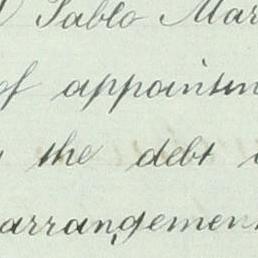 Pablo Mar
of appointm
the debt
arrangemen